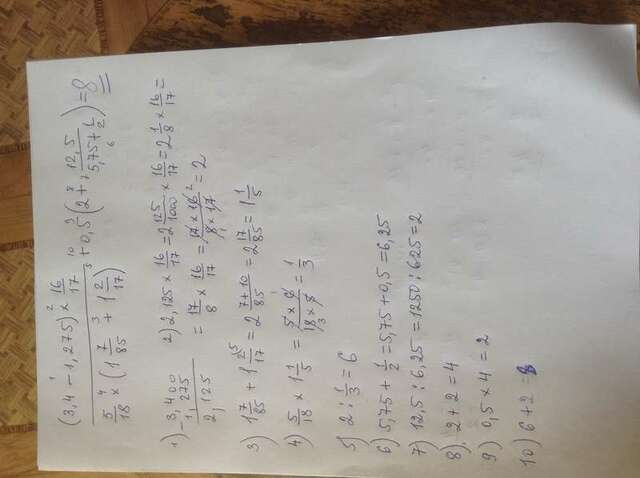 (3,4 - 1,275) × 16/17 / 5/18 × (1 7/85 + 1 2/17) + 0,5 (2 + 12,5/5,75 + 1/2) = 8
1) 3,400 - 1,275 = 2,125 2) 2,125 × 16/17 = 2 125/1000 × 16/17 = 2 1/8 × 16/17 =
= 17/8 × 16/17 = 17 × 16 2/8 × 17 1 = 2
3) 1 7/85 + 1 2/17 5 = 2 7+10/85 = 2 17/85 = 1 1/5
4) 5/18 × 1 1/5 = 5 × 6 1/18 3 × 5 = 1/3
5) 2 : 1/3 = 6
6) 5,75 + 1/2 = 5,75 + 0,5 = 6,25
7) 12,5 : 6,25 = 1250 : 625 = 2
8) 2 + 2 = 4
9) 0,5 × 4 = 2
10) 6 + 2 = 8